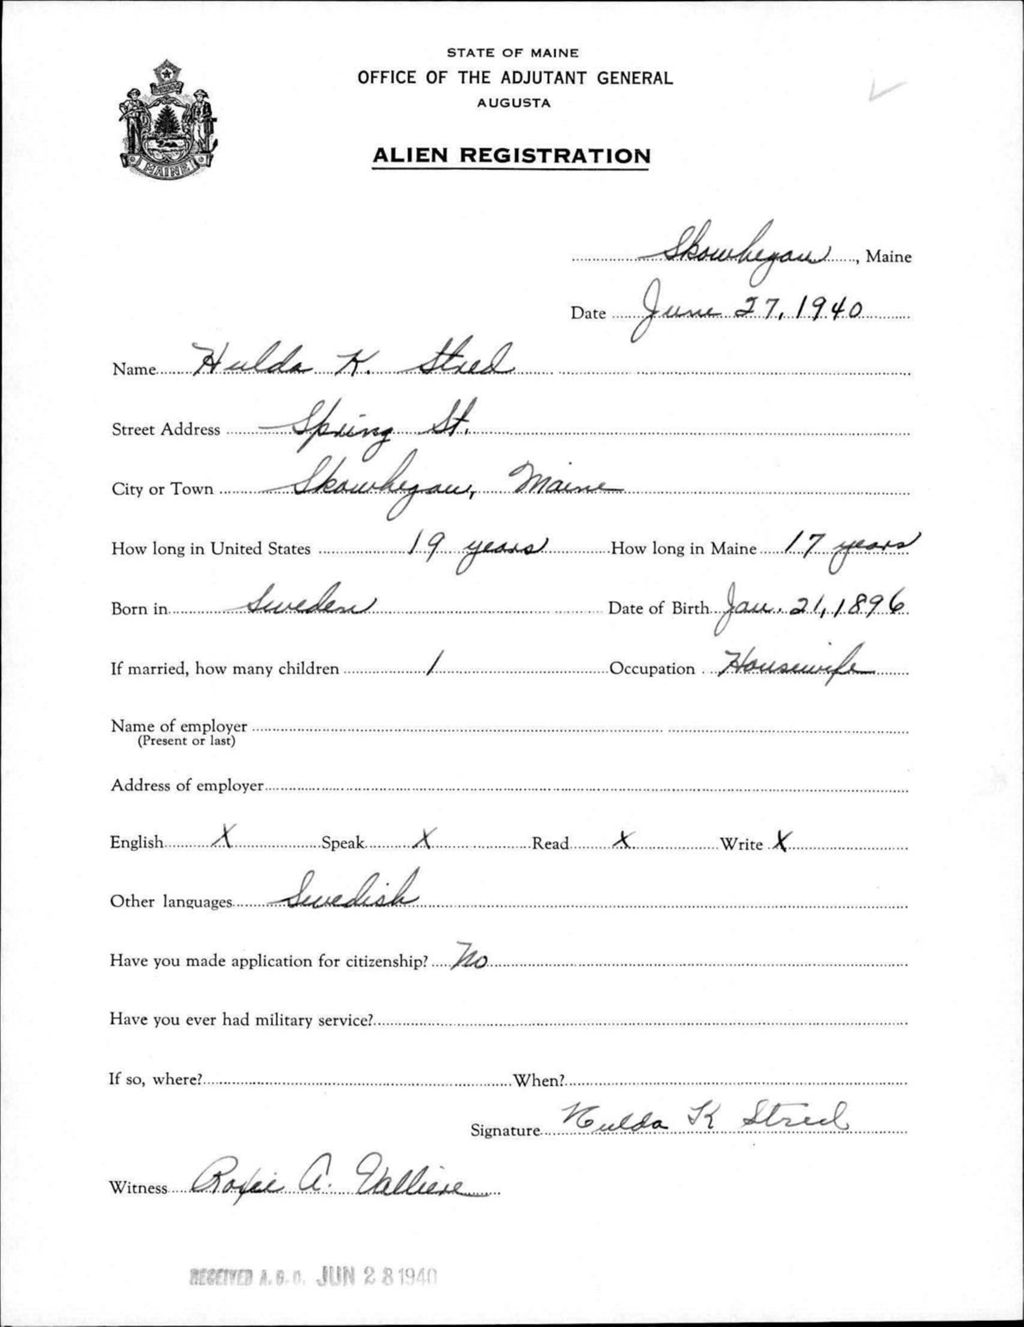 STATE OF MAINE
OFFICE OF THE ADJUTANT GENERAL
AUGUSTA
MAINE
ALIEN REGISTRATION
Skowhegan, Maine
Date June 27, 1940
Name Hulda K. Stred
Street Address Spring St.
City or Town Skowhegan, Maine
How long in United States 19 years How long in Maine 17 years
Born in Sweden Date of Birth Jan. 21, 1896
If married, how many children 1 Occupation Housewife
Name of employer
(Present or last)
Address of employer
English X Speak X Read X Write X
Other languages Swedish
Have you made application for citizenship? No
Have you ever had military service?
If so, where? When?
Signature Hulda K Stred
Witness Roxie A. Valliere
RECEIVED A.G.O. JUN 28 1940